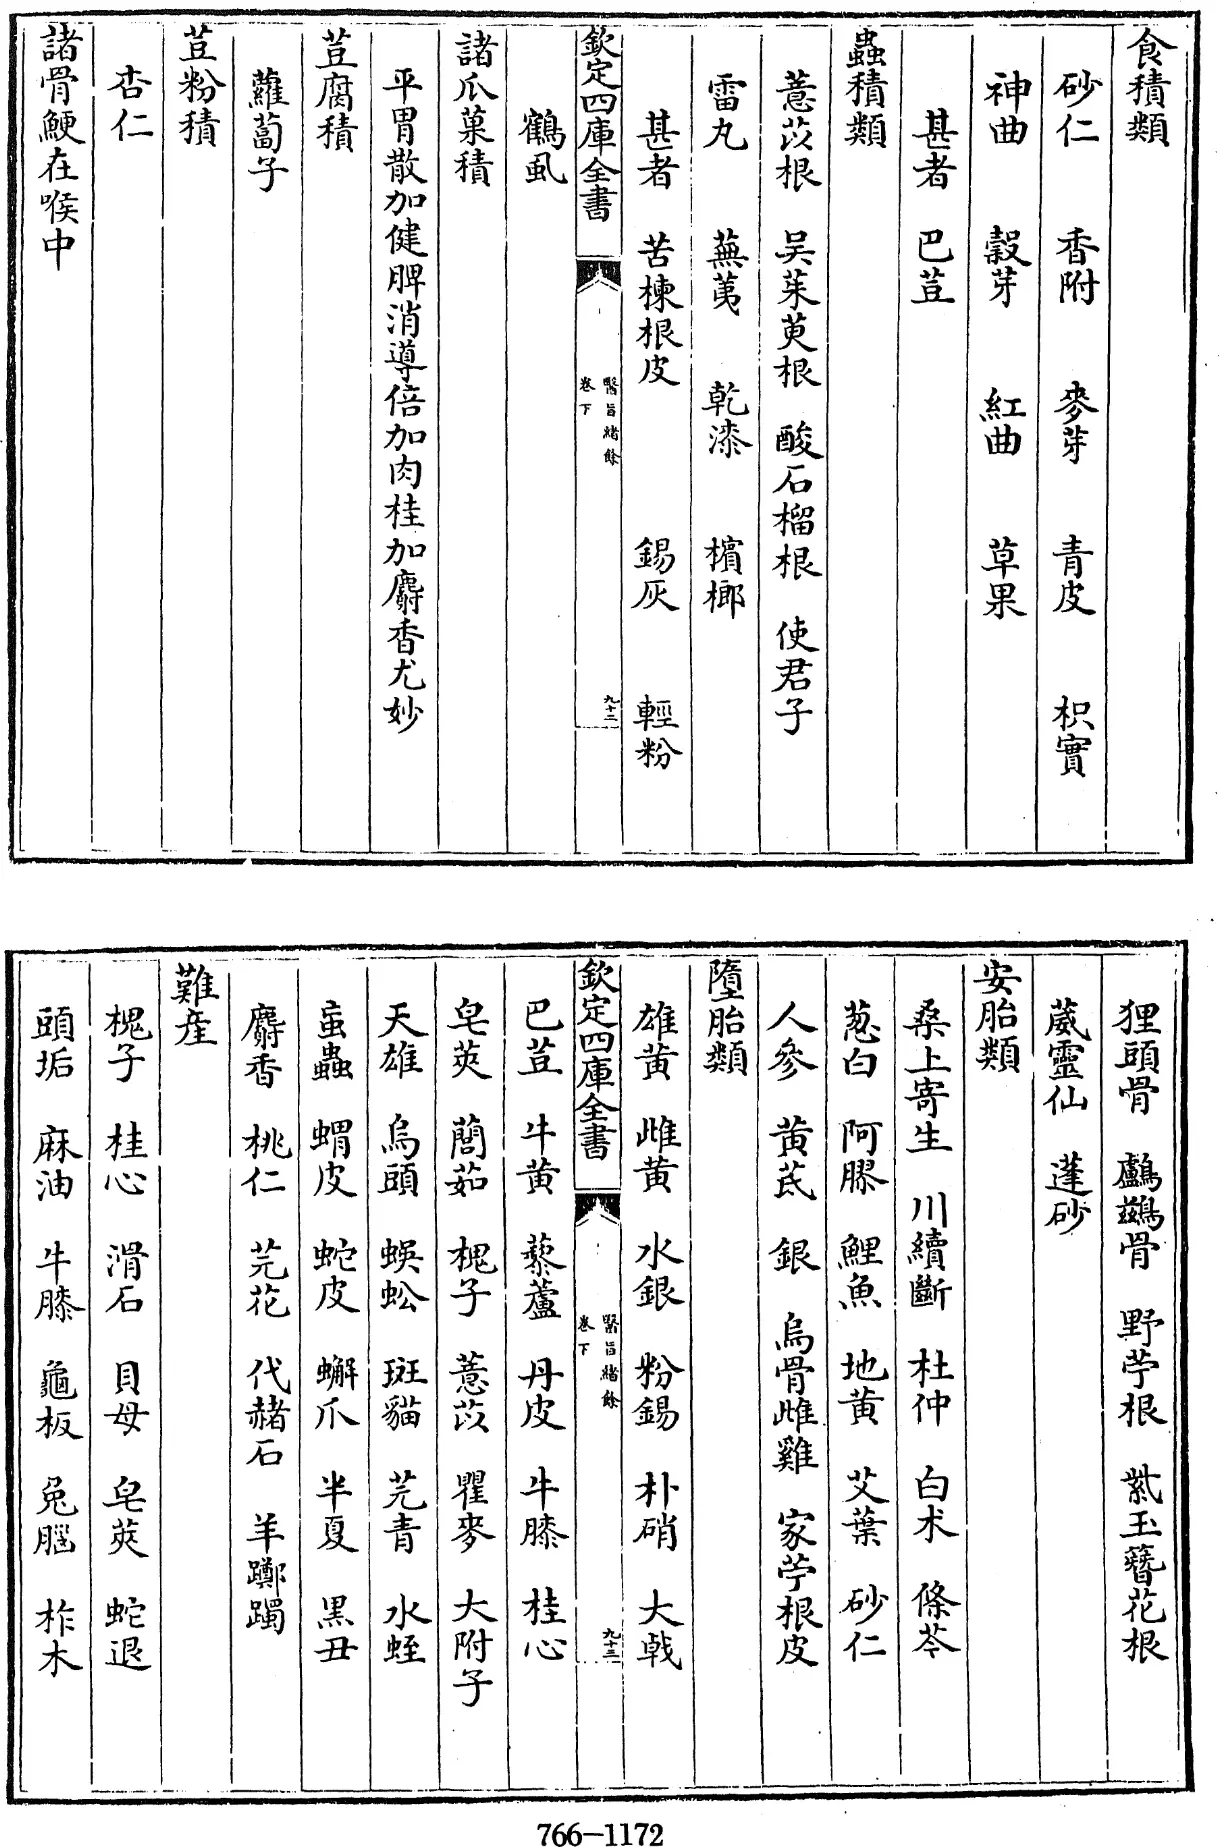 食積類
砂仁 香附 麥芽 青皮 枳實
神曲 穀芽 紅曲 草果
甚者 巴荳
蟲積類
薏苡根 吴茱萸根 酸石榴根 使君子
雷丸 蕪荑 乾漆 檳榔
甚者 苦楝根皮 錫灰 輕粉
欽定四庫全書 醫旨緒餘 卷下 九十二
鶴虱
諸瓜菓積
平胃散加健脾消導倍加肉桂加麝香尤妙
荳腐積
蘿蔔子
荳粉積
杏仁
諸骨鯁在喉中
狸頭骨 鸕鷀骨 野苧根 紫玉簪花根
葳靈仙 蓬砂
安胎類
桑上寄生 川續斷 杜仲 白术 條芩
葱白 阿膠 鯉魚 地黄 艾葉 砂仁
人參 黄芪 銀 烏骨雌雞 家苧根皮
墮胎類
雄黄 雌黄 水銀 粉錫 朴硝 大戟
欽定四庫全書 醫旨緒餘 卷下 九十三
巴荳 牛黄 藜蘆 丹皮 牛膝 桂心
皂莢 藺茹 槐子 薏苡 瞿麥 大附子
天雄 烏頭 蜈蚣 斑貓 芫青 水蛭
䖟蟲 蝟皮 蛇皮 蠏爪 半夏 黒丑
麝香 桃仁 芫花 代赭石 羊躑躅
難産
槐子 桂心 滑石 貝母 皂莢 蛇退
頭垢 麻油 牛膝 龜板 兔腦 柞木
766-1172